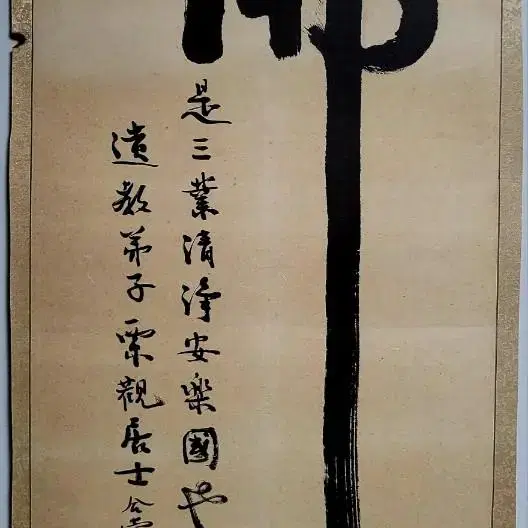 是三業清淨安樂國也
遺教弟子觀居士合